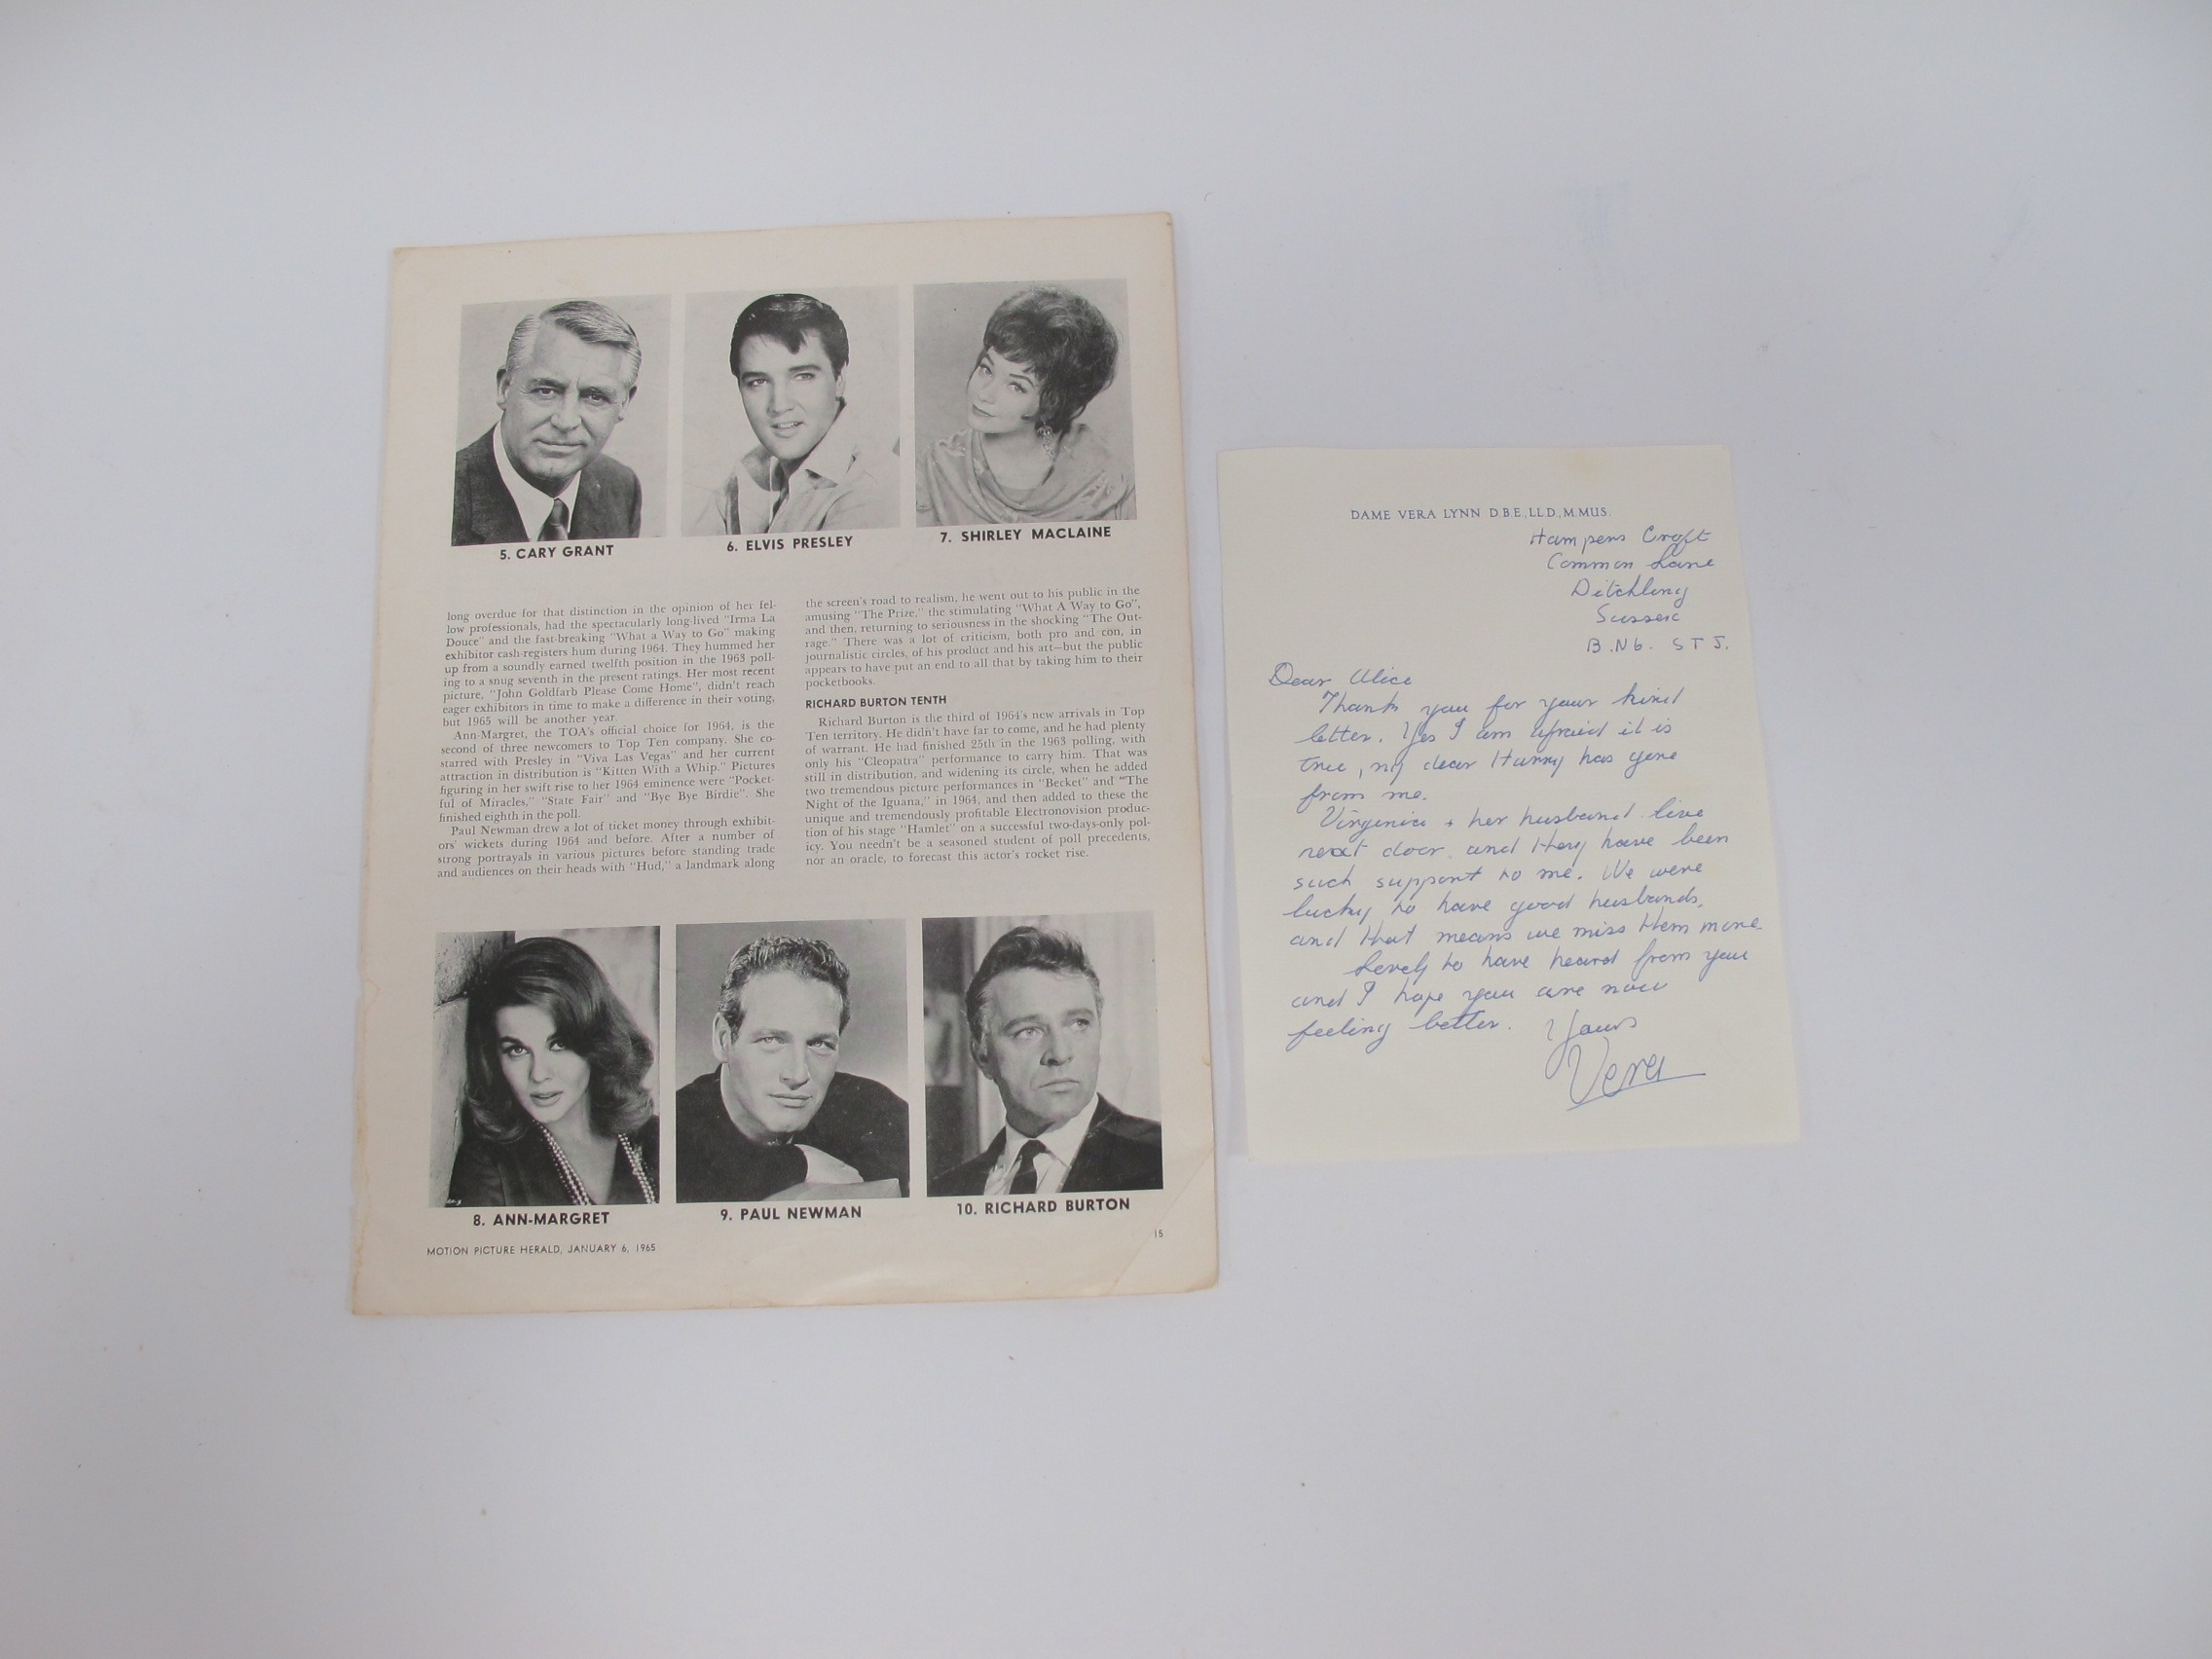 5. CARY GRANT
6. ELVIS PRESLEY
7. SHIRLEY MACLAINE
long overdue for that distinction in the opinion of her fel-
low professionals, had the spectacularly long-lived "Irma La
Douce" and the fast-breaking "What a Way to Go" making
exhibitor cash-registers hum during 1964. They hummed her
up from a soundly earned twelfth position in the 1963 poll-
ing to a snug seventh in the present ratings. Her most recent
picture, "John Goldfarb Please Come Home", didn't reach
eager exhibitors in time to make a difference in their voting,
but 1965 will be another year.
Ann-Margret, the TOA's official choice for 1964, is the
second of three newcomers to Top Ten company. She co-
starred with Presley in "Viva Las Vegas" and her current
attraction in distribution is "Kitten With a Whip." Pictures
figuring in her swift rise to her 1964 eminence were "Pocket-
ful of Miracles," "State Fair" and "Bye Bye Birdie". She
finished eighth in the poll.
Paul Newman drew a lot of ticket money through exhibit-
ors' wickets during 1964 and before. After a number of
strong portrayals in various pictures before standing trade
and audiences on their heads with "Hud," a landmark along
the screen's road to realism, he went out to his public in the
amusing "The Prize," the stimulating "What A Way to Go",
and then, returning to seriousness in the shocking "The Out-
rage." There was a lot of criticism, both pro and con, in
journalistic circles, of his product and his art—but the public
appears to have put an end to all that by taking him to their
pocketbooks.
RICHARD BURTON TENTH
Richard Burton is the third of 1964's new arrivals in Top
Ten territory. He didn't have far to come, and he had plenty
of warrant. He had finished 25th in the 1963 polling, with
only his "Cleopatra" performance to carry him. That was
still in distribution, and widening its circle, when he added
two tremendous picture performances in "Becket" and "The
Night of the Iguana," in 1964, and then added to these the
unique and tremendously profitable Electronovision produc-
tion of his stage "Hamlet" on a successful two-days-only pol-
icy. You needn't be a seasoned student of poll precedents,
nor an oracle, to forecast this actor's rocket rise.
8. ANN-MARGRET
9. PAUL NEWMAN
10. RICHARD BURTON
MOTION PICTURE HERALD, JANUARY 6, 1965
15
DAME VERA LYNN D.B.E., LL.D., M.MUS.
Hampens Croft
Common Lane
Ditchling
Sussex
B.N6. STJ.
Dear Alice
Thank you for your kind
letter. Yes I am afraid it is
true, my dear Harry has gone
from me.
Virginia + her husband live
next door. and they have been
such support to me. We were
lucky to have good husbands,
and that means we miss them more.
Lovely to have heard from you
and I hope you are now
feeling better. Yours
Vera